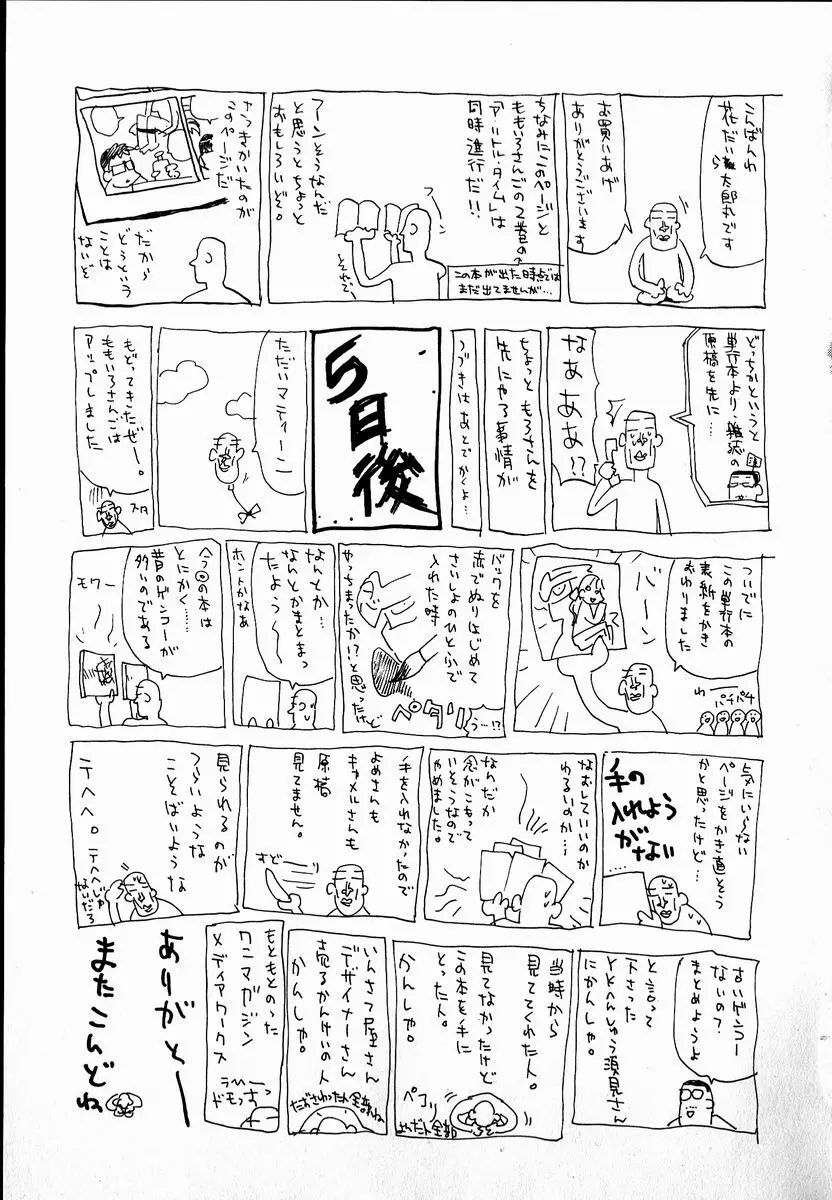 こんばんわ
花だい
太郎丸です
お買いあげ
ありがとうございます
ちなみにこのページと
ももいろさんごの2巻の
「アルトル・タイム」は
同時進行だ!!
この本が出た時点では
まだ出てませんが…
フーン
フーンそうなんだ
と思うとちょっと
おもしろいぞ。
それで
さっきかいたのが
このページだ
だから
どうという
ことは
ないぞ
どっちかというと
単行本より、雑誌の
原稿を先に…
なぁぁぁ!?
ちょっともろさんを
先にやる事情が
つづきはあとでかくよ…
5日後
ただいマティーン
もどってきたぜー。
ももいろさんごは
アップしました
スタ
ついでに
この単行本の
表紙をかき
おわりました
バーン
わー
パチパチ
バックを
赤でぬりはじめて
さいしょのひとふで
入れた時
ペタリ
う…!?
やっちまったか!?と思ったけど
なんとか…
なんとかまとまっ
たよう〜
ホントかなあ
今回の本は
とにかく……
昔のゲンコーが
多いのである
モワー
気にいらない
ページをかき直そう
かと思ったけど…
手の
入れよう
がない
…
なおしていいのか
わるいのか…
なんだか
念がこもって
いそうなので
やめました。
手を入れなかったので
よめさんも
キャメルさんも
原稿
見てません。
すどーり
見られるのが
つらいような
こそばいような
テヘヘ。
テヘヘじゃ
ないだろ
古いゲンコー
ないの?
まとめようよ
と言って
下さった
YKへんしゅう須見さん
にかんしゃ。
当時から
見ててくれた人。
見てなかったけど
この本を手に
とった人。
かんしゃ。
ペコリ
よんだ人全部
いんさつ屋さん
デザイナーさん
売るかんけいの人
かんしゃ。
たずさわった人全部ね
もともとのった
ワニマガジン
メディアワークス
ラヘ〜
ドモっさっ
ありがとー
またこんどね